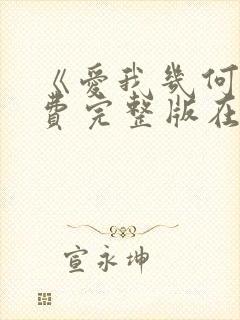 《爱我几何
费完整版在
宣永坤